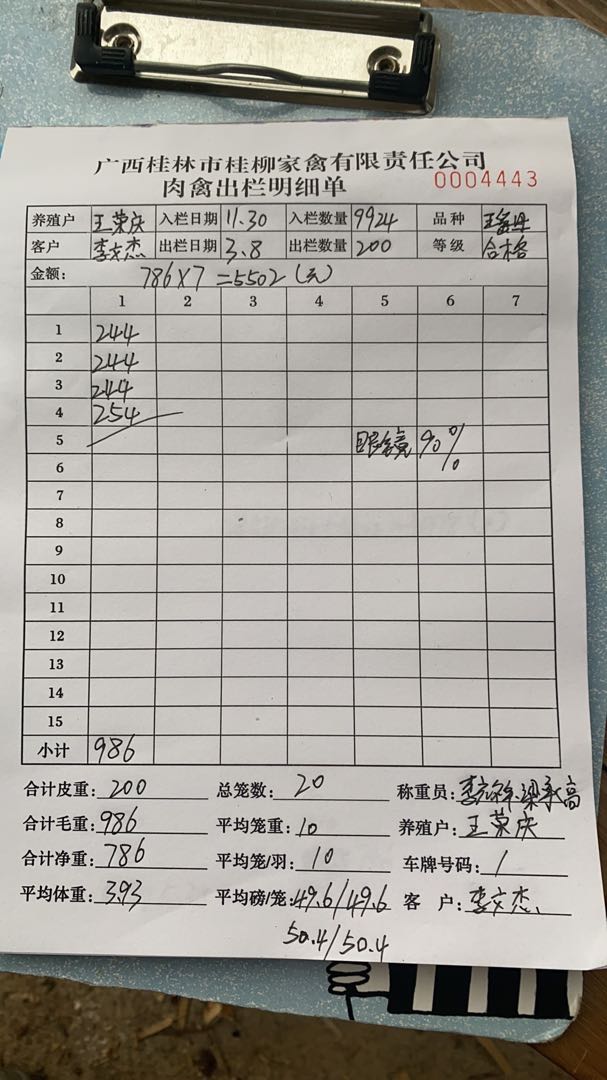 广西桂林市桂柳家禽有限责任公司
肉禽出栏明细单 0004443
养殖户 王荣庆 入栏日期 11.30 入栏数量 9924 品种
客户 李文杰 出栏日期 3.8 出栏数量 200 等级 合格
金额: 786×7=5502(元)
1 2 3 4 5 6 7
1 244
2 244
3 244
4 254
5 眼镜 90%
6
7
8
9
10
11
12
13
14
15
小计 986
合计皮重: 200 总笼数: 20 称重员:
合计毛重: 986 平均笼重: 10 养殖户: 王荣庆
合计净重: 786 平均笼/羽: 10 车牌号码: /
平均体重: 3.93 平均磅/笼: 49.6/49.6 客 户: 李文杰
50.4/50.4